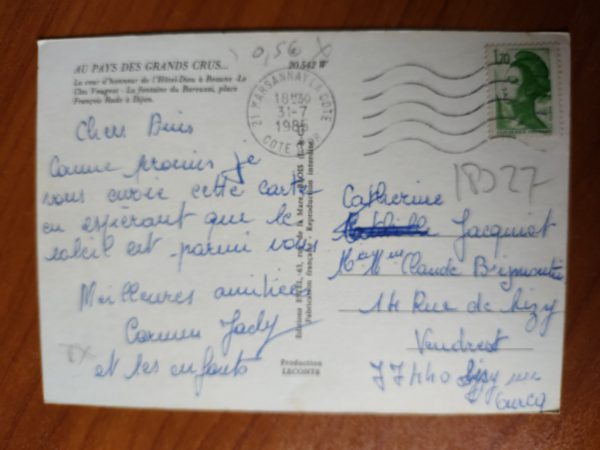 AU PAYS DES GRANDS CRUS...
20.542 W
La cour d'honneur de l'Hôtel-Dieu à Beaune - Le
Clos Vougeot - La fontaine du Bareuzai, place
François Rude à Dijon.
0,56 X
21 MARSANNAY LA COTE
18H30
31-7
1985
COTE D'OR
1,70
Chers Amis
Comme promis je
vous envoie cette carte
en esperant que le
soleil est parmi vous
Meilleures amitiées
Carmen Jacky
et les enfants
EX
Editions 63, rue de la Mare,
Fabrication française - Reproduction interdite
Production
LACONTE
18327
Catherine
Jacquiot
Mr Mme Claude
14 Rue de Lizy
Vendrest
77440 Lizy sur
Ourcq